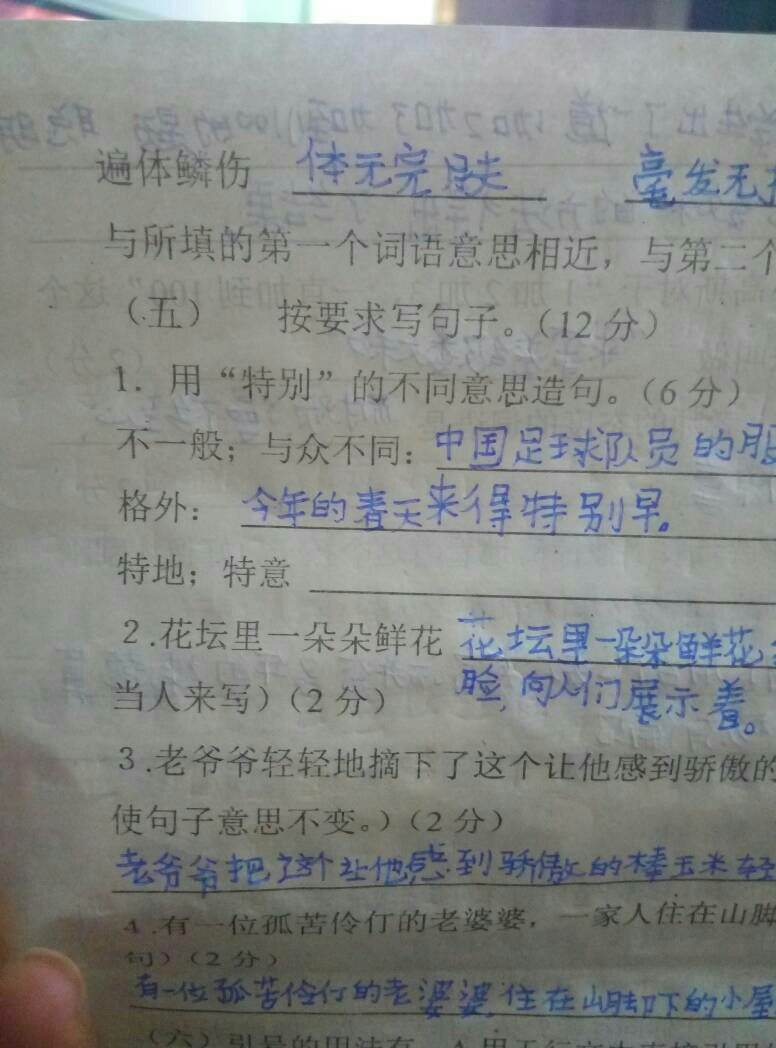 遍体鳞伤 体无完肤 毫发无
与所填的第一个词语意思相近，与第二个
（五） 按要求写句子。（12分）
1. 用“特别”的不同意思造句。（6分）
不一般；与众不同：中国足球队员的服
格外： 今年的春天来得特别早。
特地；特意
2.花坛里一朵朵鲜花 花坛里一朵朵鲜花
当人来写）（2分） 脸，向人们展示着。
3.老爷爷轻轻地摘下了这个让他感到骄傲的
使句子意思不变。）（2分）
老爷爷把了这个让他感到骄傲的棒玉米轻
4.有一位孤苦伶仃的老婆婆，一家人住在山脚
句）（2分）
有一位孤苦伶仃的老婆婆住在山脚下的小屋